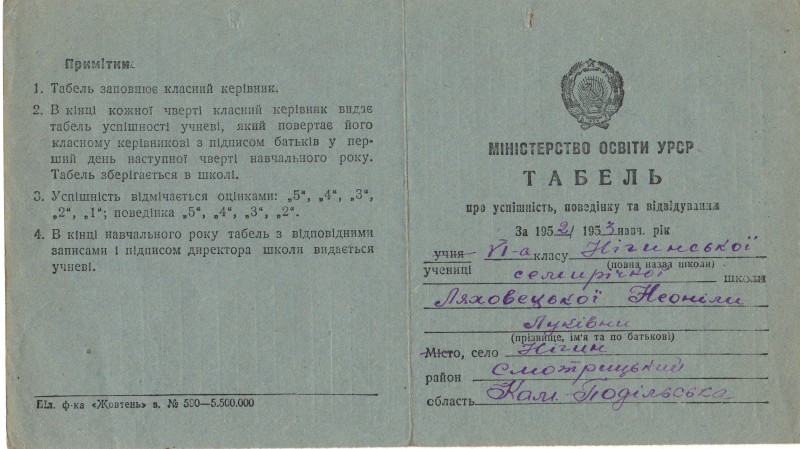 Примітки:
1. Табель заповнює класний керівник.
2. В кінці кожної чверті класний керівник видає
табель успішності учневі, який повертає його
класному керівникові з підписом батьків у пер-
ший день наступної чверті навчального року.
Табель зберігається в школі.
3. Успішність відмічається оцінками: „5“, „4“, „3“,
„2“, „1“; поведінка „5“, „4“, „3“, „2“.
4. В кінці навчального року табель з відповідними
записами і підписом директора школи видається
учневі.
Біл. ф-ка «Жовтень» з. № 590—5.500.000
МІНІСТЕРСТВО ОСВІТИ УРСР
ТАБЕЛЬ
про успішність, поведінку та відвідування
За 1952/1953 навч. рік
учня VI-а класу Нігинської
(повна назва школи)
учениці семирічної школи
Ляховецької Неоніли
Луківни
(прізвище, ім'я та по батькові)
Місто, село Нігин
район Смотрицький
область Кам.-Подільська